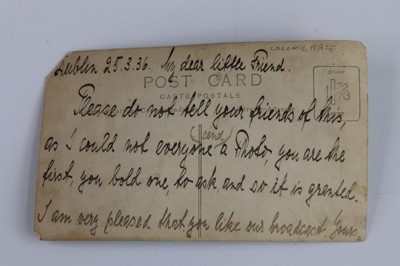 Dublin 25.3.36. My dear little Friend.
POST CARD
CARTE POSTALE
Please do not tell your friends of this,
(send)
as I could not everyone a Photo, you are the
first, you bold one, to ask and so it is granted.
I am very pleased that you like our broadcast. Yours